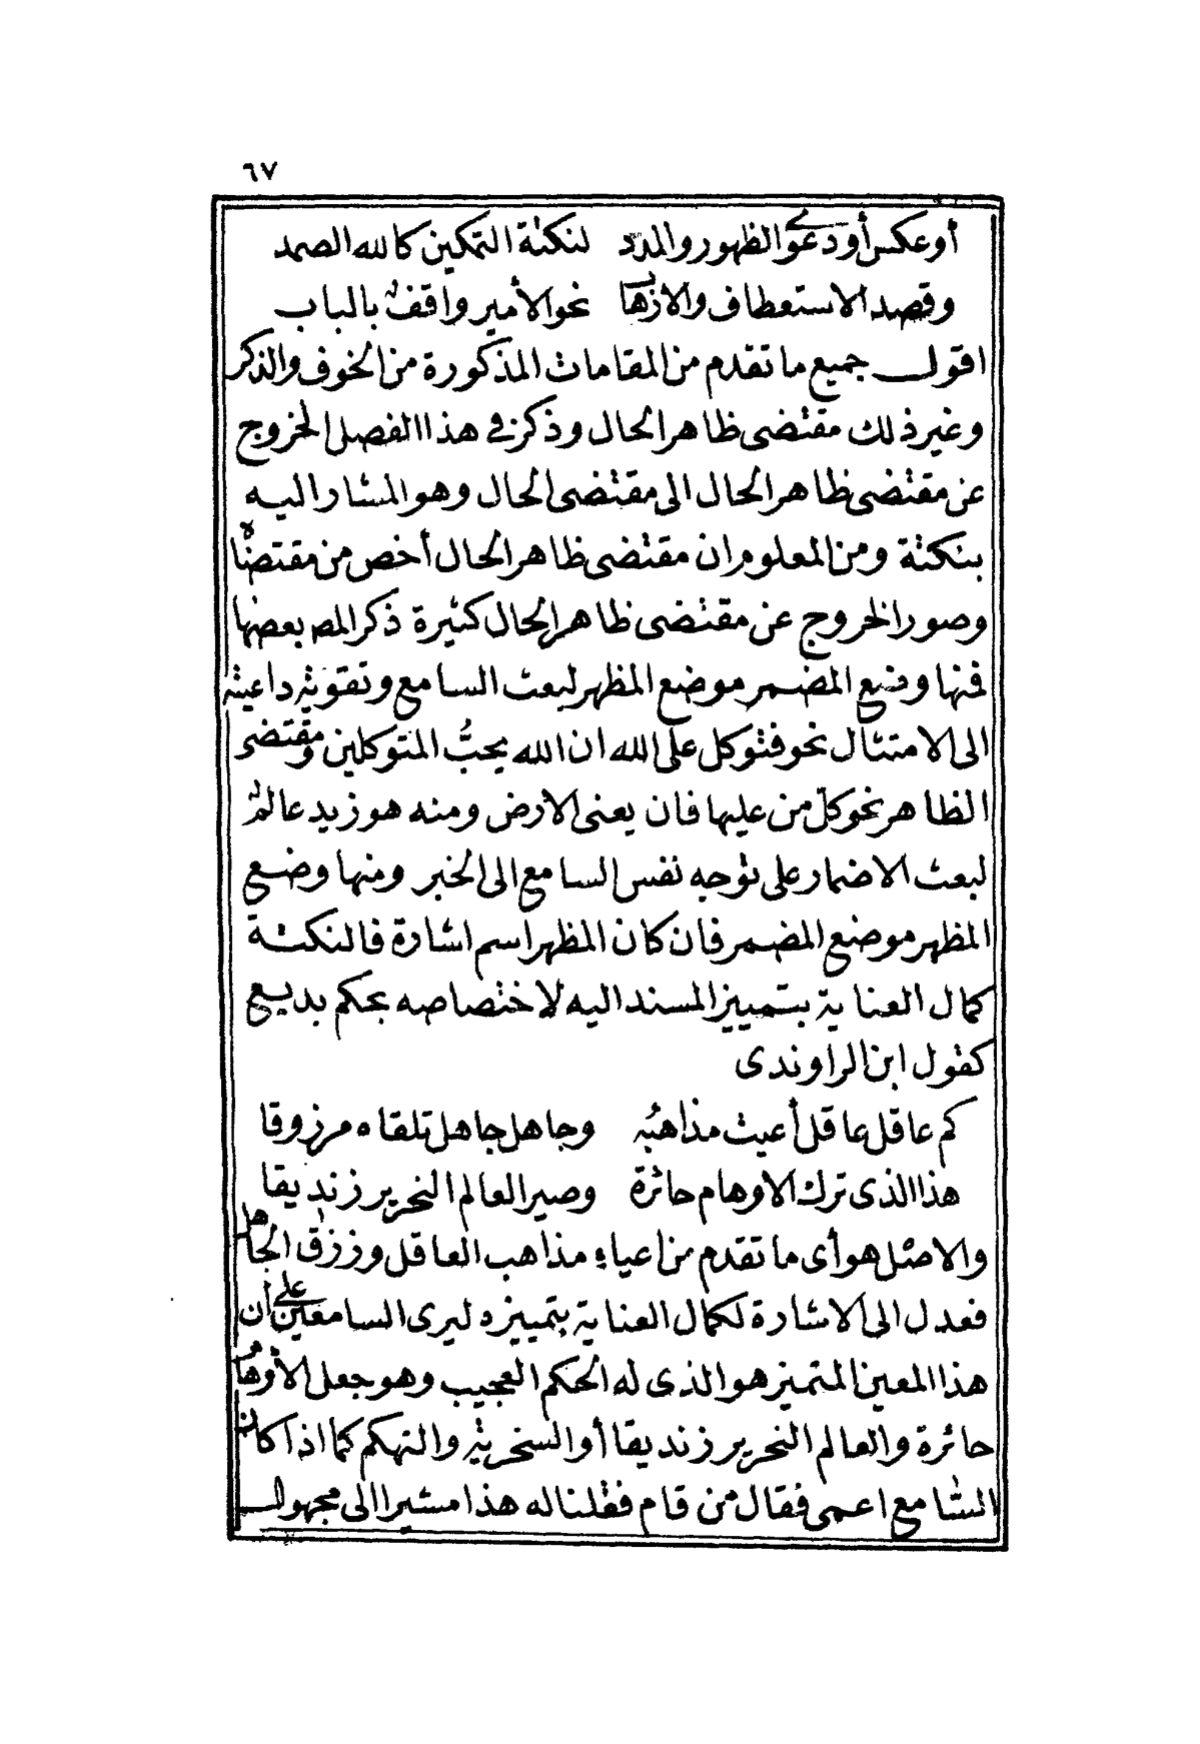 ٦٧
أو عكس أو دعوى الظهور والمدد لنكتة التمكين كالله الصمد
وقصد الاستعطاف والارهاب نحو الأمير واقف بالباب
اقول جميع ما تقدم من المقامات المذكورة من الخوف والذكر
وغير ذلك مقتضى ظاهر الحال وذكر في هذا الفصل الخروج
عن مقتضى ظاهر الحال الى مقتضى الحال وهو المشار اليه
بنكتة ومن المعلوم ان مقتضى ظاهر الحال أخص من مقتضاه
وصور الخروج عن مقتضى ظاهر الحال كثيرة ذكر المص بعضها
فمنها وضع المضمر موضع المظهر لبعث السامع وتقوية داعيته
الى الامتثال نحو فتوكل على الله ان الله يحبُّ المتوكلين ومقتضى
الظاهر نحو كل من عليها فان يعنى الأرض ومنه هو زيد عالمٌ
لبعث الاضمار على توجه نفس السامع الى الخبر ومنها وضع
المظهر موضع المضمر فان كان المظهر اسم اشارة فالنكتة
كمال العناية بتمييز المسند اليه لاختصاصه بحكم بديع
كقول ابن الراوندى
كم عاقل عاقل أعيت مذاهبُه وجاهل جاهل تلقاه مرزوقا
هذا الذى ترك الاوهام حائرة وصير العالم النحرير زنديقا
والاصل هو أى ما تقدم من اعياء مذاهب العاقل ورزق الجاهل
فعدل الى الاشارة لكمال العناية بتمييزه ليرى السامعين على أن
هذا المعين المتميز هو الذى له الحكم العجيب وهو جعل الأوهام
حائرة والعالم النحرير زنديقا أو السخرية والتهكم كما اذا كان
السّامع اعمى فقال من قام فقلنا له هذا مشيرا الى مجهول